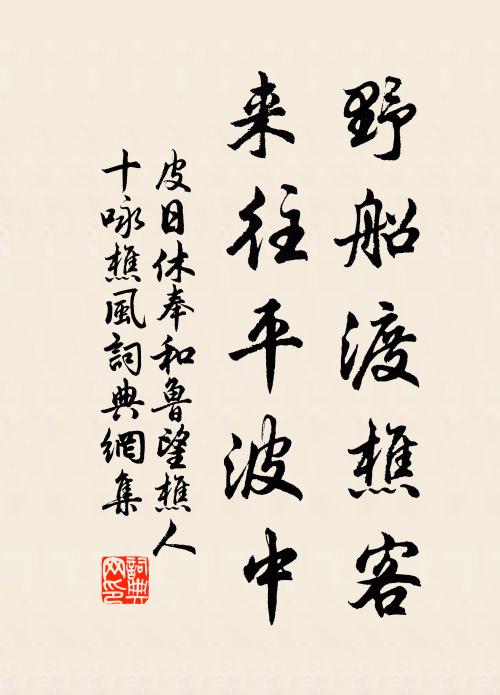 野船渡樵客
来往平波中
皮日休奉和魯望樵人
十咏樵風詞典網集
詞典
网印